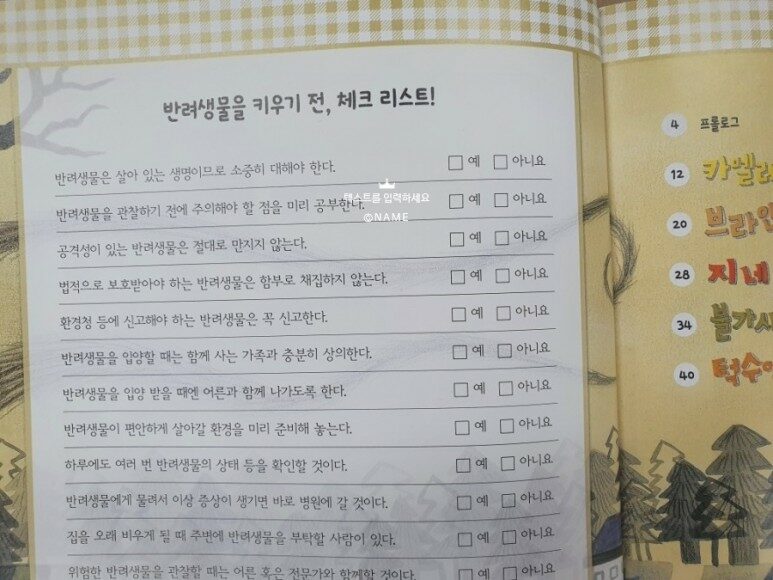 반려생물을 키우기 전, 체크 리스트!
반려생물은 살아 있는 생명이므로 소중히 대해야 한다. 예 아니요
반려생물을 관찰하기 전에 주의해야 할 점을 미리 공부한다. 예 아니요
텍스트를 입력하세요
©NAME
공격성이 있는 반려생물은 절대로 만지지 않는다. 예 아니요
법적으로 보호받아야 하는 반려생물은 함부로 채집하지 않는다. 예 아니요
환경청 등에 신고해야 하는 반려생물은 꼭 신고한다. 예 아니요
반려생물을 입양할 때는 함께 사는 가족과 충분히 상의한다. 예 아니요
반려생물을 입양 받을 때엔 어른과 함께 나가도록 한다. 예 아니요
반려생물이 편안하게 살아갈 환경을 미리 준비해 놓는다. 예 아니요
하루에도 여러 번 반려생물의 상태 등을 확인할 것이다. 예 아니요
반려생물에게 물려서 이상 증상이 생기면 바로 병원에 갈 것이다. 예 아니요
집을 오래 비우게 될 때 주변에 반려생물을 부탁할 사람이 있다. 예 아니요
위험한 반려생물을 관찰할 때는 어른 혹은 전문가와 함께할 것이다. 예 아니요
4 프롤로그
12 카멜레
20 브라인
28 지네
34 불가사
40 턱수